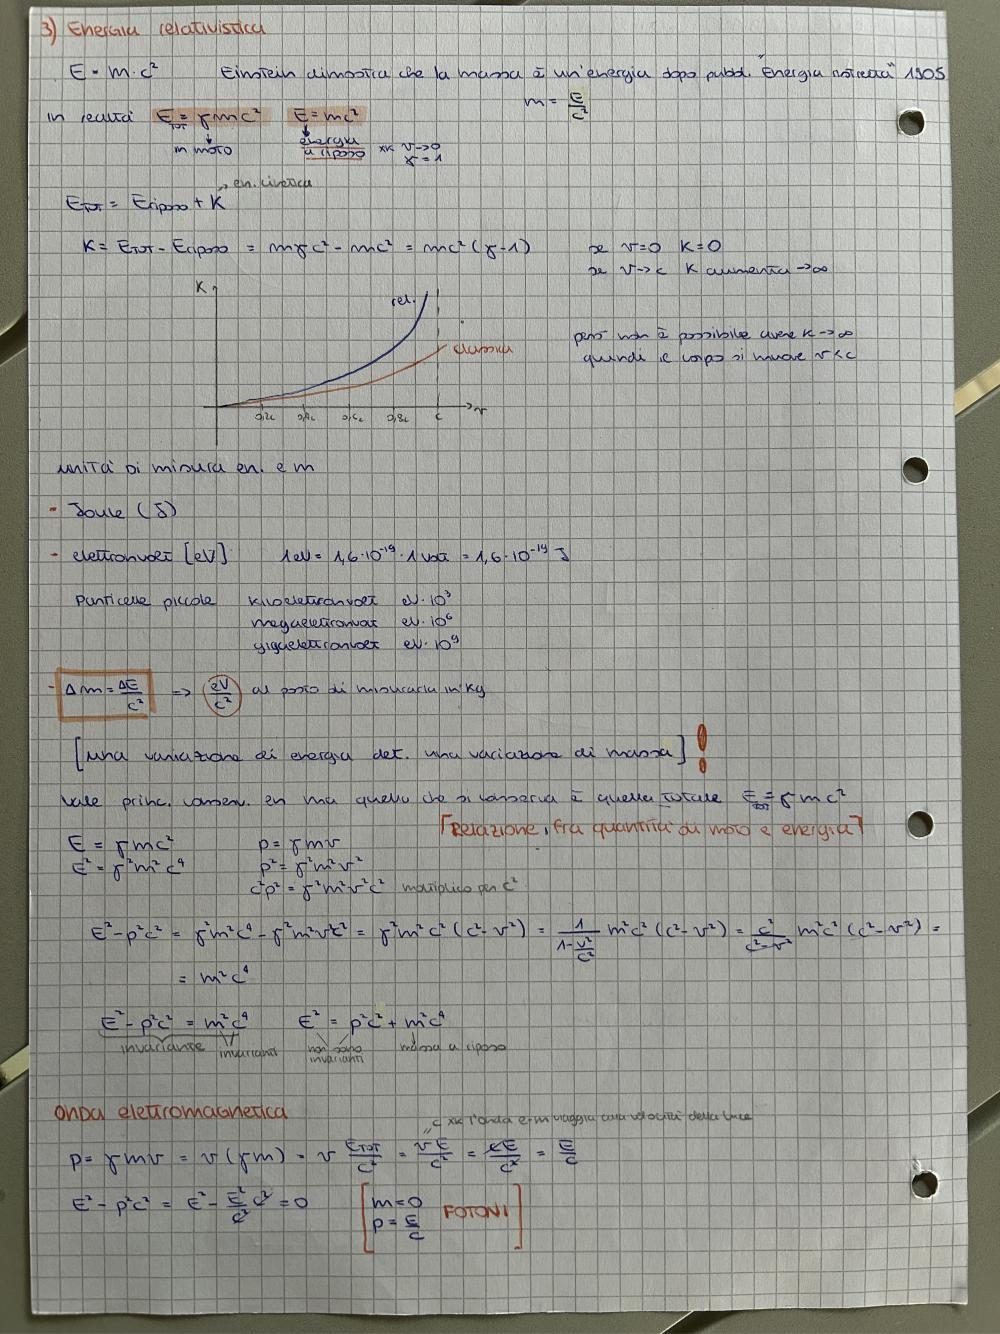 3) Energia relativistica
E = m·c² Einstein dimostra che la massa è un'energia dopo pubbl. "Energia 1905
m = E/c²
In realtà E_TOT = γmc² E = mc²
in moto energia a riposo xk v→0 γ=1
en. cinetica
E_TOT = E_riposo + K
K = E_TOT - E_riposo = mγc² - mc² = mc²(γ-1) se v=0 K=0
se v→c K aumenta →∞
K rel. classica
però non è possibile avere K→∞
quindi il corpo si muove v<c
0,2c 0,4c 0,8c c v
unità di misura en. e m
- Joule (J)
- elettronvolt [eV] 1eV = 1,6·10⁻¹⁹·1 volt = 1,6·10⁻¹⁹ J
Particelle piccole kiloelettronvolt eV·10³
megaelettronvolt eV·10⁶
gigaelettronvolt eV·10⁹
- Δm = ΔE/c² => eV/c² al posto di misurarla in kg
[una variazione di energia det. una variazione di massa]!
Vale princ. conserv. en ma quella che si conserva è quella totale E_TOT = γmc²
[Relazione fra quantità di moto e energia]
E = γmc² p = γmv
E² = γ²m²c⁴ p² = γ²m²v²
c²p² = γ²m²v²c² moltiplico per c²
E²-p²c² = γ²m²c⁴ - γ²m²v²c² = γ²m²c²(c²-v²) = 1/(1-v²/c²) m²c²(c²-v²) = c²/(c²-v²) m²c²(c²-v²) =
= m²c⁴
E²-p²c² = m²c⁴ E² = p²c² + m²c⁴
invariante invarianti non sono invarianti massa a riposo
Onda elettromagnetica
c xk l'onda e-m viaggia alla velocità della luce
p = γmv = v(γm) = v E_TOT/c² = vE/c² = cE/c² = E/c
E²-p²c² = E² - E²/c² c² = 0 [m=0
p = E/c FOTONI]